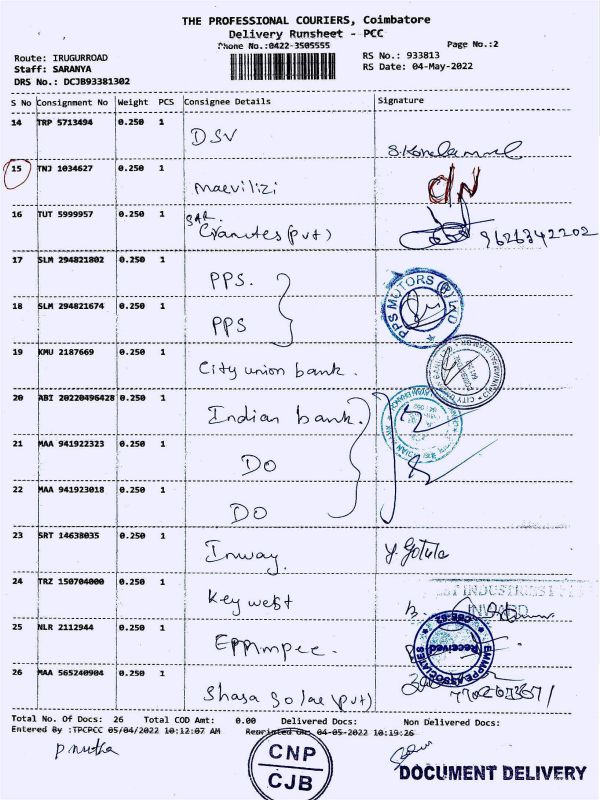 THE PROFESSIONAL COURIERS, Coimbatore
Delivery Runsheet - PCC
Phone No.:0422-3505555
Page No.:2
Route: IRUGURROAD
RS No.: 933813
Staff: SARANYA
RS Date: 04-May-2022
DRS No.: DCJB93381302
S No Consignment No Weight PCS Consignee Details Signature
14 TRP 5713494 0.250 1 DSV
15 TNJ 1034627 0.250 1 Maevilizi
16 TUT 5999957 0.250 1 SAR. Granites (pvt) 9626342202
17 SLM 294821802 0.250 1 PPS.
18 SLM 294821674 0.250 1 PPS
PPS MOTORS (P) LTD
19 KMU 2187669 0.250 1 City union bank.
20 ABI 20220496428 0.250 1 Indian bank.
21 MAA 941922323 0.250 1 DO
22 MAA 941923018 0.250 1 DO
23 SRT 14638035 0.250 1 Inway.
24 TRZ 150704000 0.250 1 Key west
INWARD
25 NLR 2112944 0.250 1
EMAPPE ASSOCIATES
Received
26 MAA 565240904 0.250 1 Shasa Solae (pvt)
Total No. Of Docs: 26 Total COD Amt: 0.00 Delivered Docs: Non Delivered Docs:
Entered By :TPCPCC 05/04/2022 10:12:07 AM Reprinted On: 04-05-2022 10:19:26
CNP
CJB
DOCUMENT DELIVERY